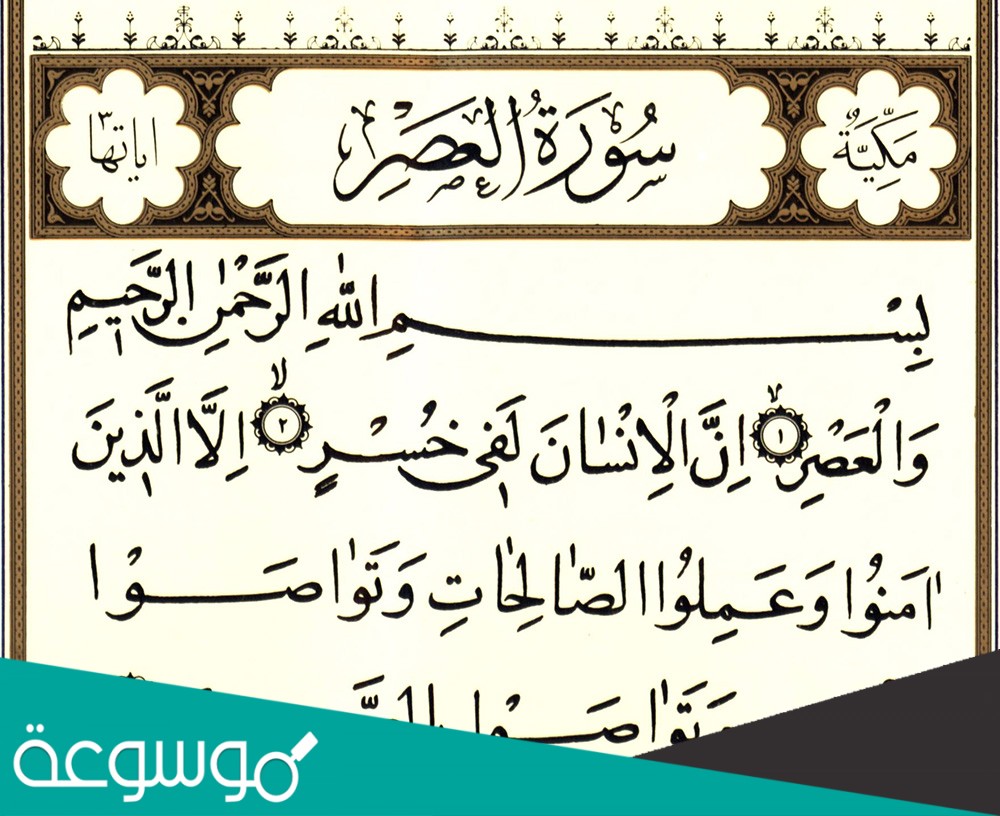 مَكِّيَّةٌ سُورَةُ الْعَصْرِ اٰيَاتُهَا ٣
بِسْمِ اللّٰهِ الرَّحْمٰنِ الرَّحِيمِ
وَالْعَصْرِ ١ اِنَّ الْاِنْسَانَ لَفِي خُسْرٍ ٢ اِلَّا الَّذِينَ
اٰمَنُوا وَعَمِلُوا الصَّالِحَاتِ وَتَوَاصَوْا
وَتَوَاصَوْا
موسوعة